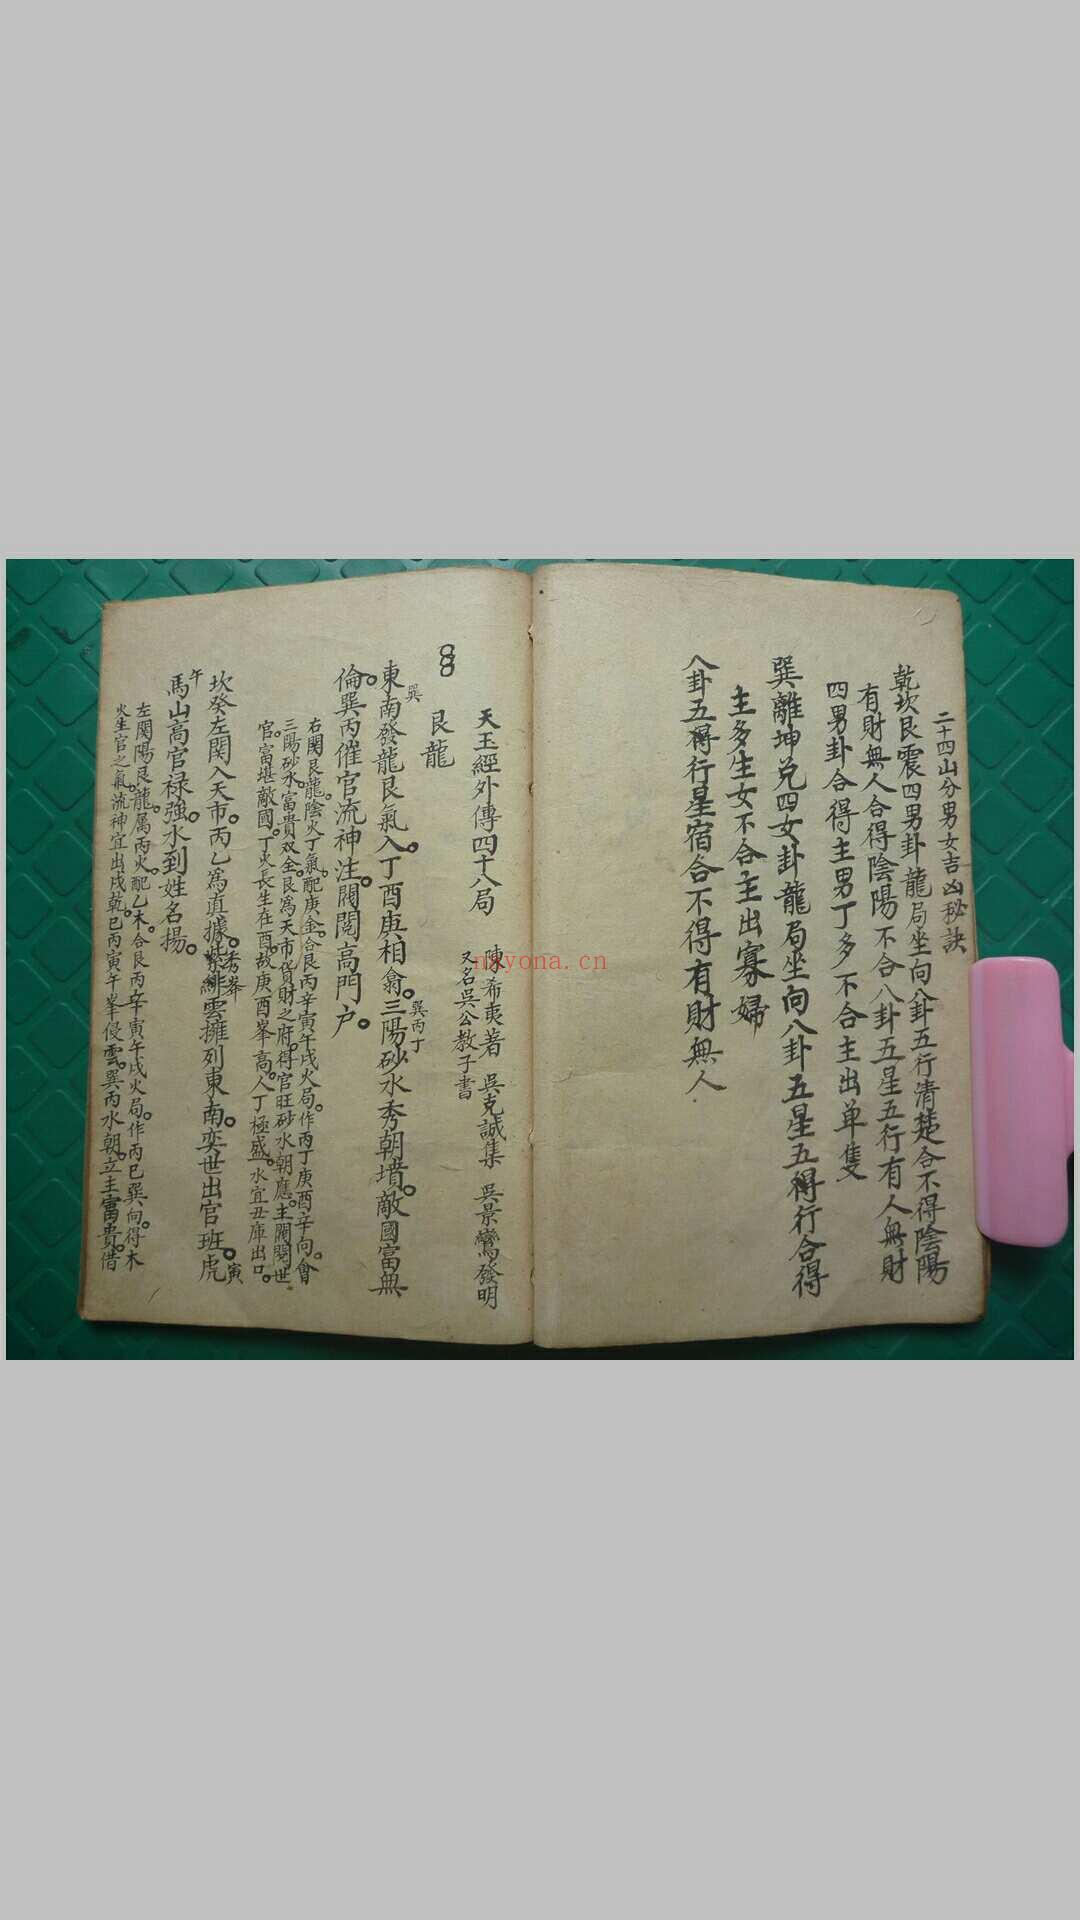 二十四山分男女吉凶秘訣
乾坎艮震四男卦龍局坐向八卦五行清楚合不得陰陽
有財無人合得陰陽不合八卦五星五行有人無財
四男卦合得主男丁多不合主出单隻
巽離坤兑四女卦龍局坐向八卦五星五得行合得
主多生女不合主出寡婦
八卦五得行星宿合不得有財無人
天玉經外傳四十八局
陳希夷著 吳克誠集 吳景鸞發明
又名吳公教子書
艮龍
東南發龍艮氣入丁酉庚相翕三陽砂水秀朝墳敵國富無
巽
巽丙丁
倫巽丙催官流神注閥閱高門户
右関艮龍陰火丁氣配庚金合艮丙辛寅午戌火局作丙丁庚酉辛向會
三陽砂水富貴双全艮為天市貨財之府得官旺砂水朝應主閥閱世
官富堪敵國丁火長生在酉故庚酉峯高人丁極盛水宜丑庫出口
坎癸左関入天市丙乙為直據紫緋雲擁列東南奕世出官班虎
秀峯
寅
午
馬山高官禄強水到姓名揚
左関陽艮龍属丙火配乙木合艮丙辛寅午戌火局作丙巳巽向得木
火生官之氣流神宜出戌乾巳丙寅午峯侵雲巽丙水朝立主富貴借
nayona.cn